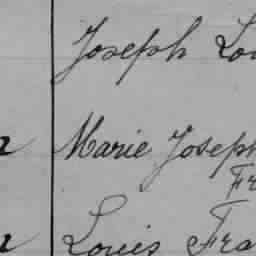 Joseph Lou
Marie Joseph
Fr
Louis Fra